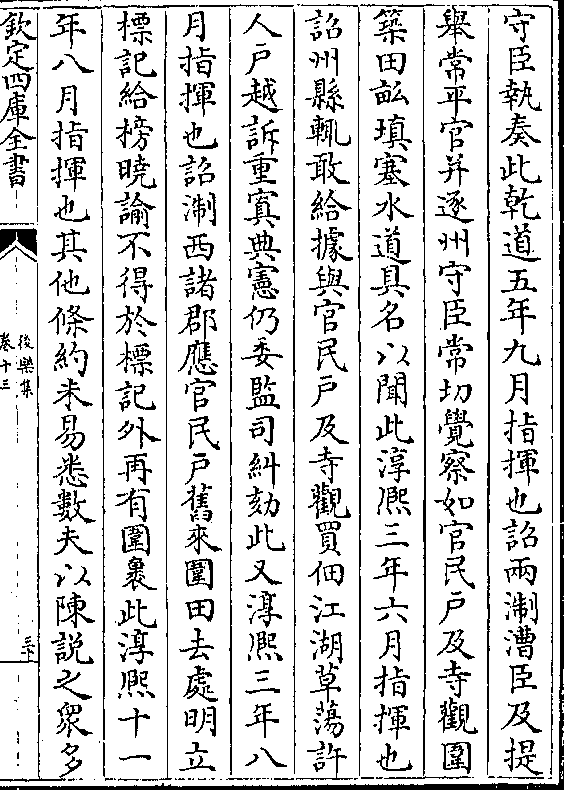 守臣執奏此乾道五年九月指揮也詔兩淛漕臣及提
舉常平官并逐州守臣常切覺察如官民戶及寺觀圍
築田畝填塞水道具名以聞此淳熈三年六月指揮也
詔州縣輒敢給據與官民戶及寺觀買佃江湖草蕩許
人戶越訴重寘典憲仍委監司糾劾此又淳熈三年八
月指揮也詔淛西諸郡應官民戶舊來圍田去處明立
標記給榜曉諭不得於標記外再有圍裹此淳熈十一
年八月指揮也其他條約未易悉數夫以陳說之衆多
欽定四庫全書
後樂集
卷十三
三十